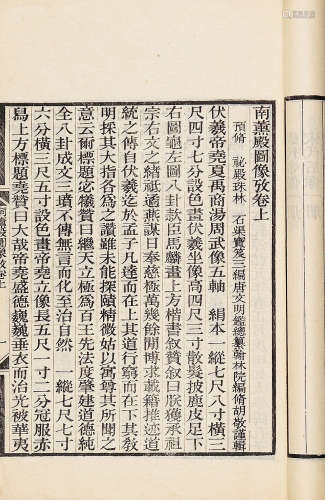 南薰殿圖像攷卷上
預脩 祕殿珠林 石渠寶笈三編唐文明鑑總纂翰林院編脩胡敬謹輯
伏羲帝堯夏禹商湯周武像五軸 絹本一縱七尺八寸橫三
尺四寸七分設色畫伏羲坐像高四尺三寸散髮披鹿皮足下
右圖龜左圖八卦款臣馬麟畫上方楷書叙贊叙曰朕獲承祖
宗右文之緒祗遹燕謀日奉慈極萬幾餘閒博求載籍推迹道
統之傳自伏羲迄於孟子凡達而在上其道行窮而在下其教
明採其大指各為之讚雖未能探賾精微姑以寓尊其所聞之
意云爾標題宓犧贊曰繼天立極爲百王先法度肇建道德純
全八卦成文三墳不傳無言而化至治自然 一縱七尺七寸
六分橫三尺五寸設色畫帝堯立像長五尺一寸二分冠服赤
舄上方標題堯贊曰大哉帝堯盛德巍巍垂衣而治光被華夷
南薰殿圖像攷卷上
一